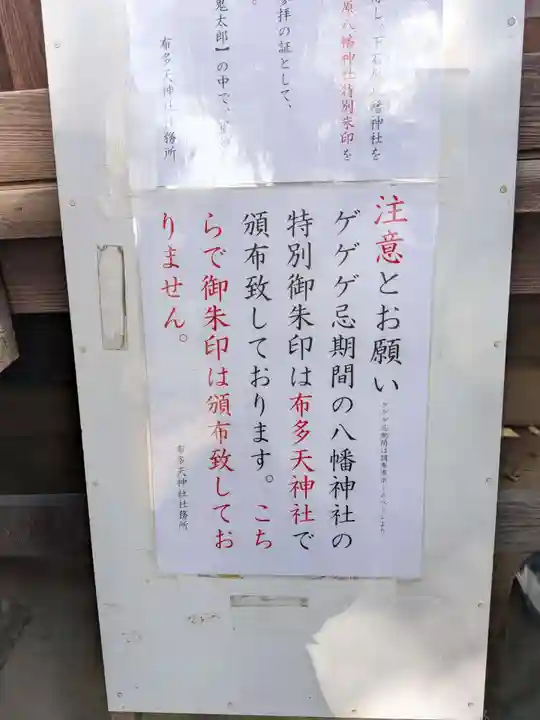 し、下石原八幡神社を
原八幡神社特別朱印を
参拝の証として、
鬼太郎】の中で、
布多天神社社務所
注意とお願い
ゲゲゲ忌期間は調布市ホームページより
ゲゲゲ忌期間の八幡神社の
特別御朱印は布多天神社で
頒布致しております。こち
らで御朱印は頒布致してお
りません。
布多天神社社務所